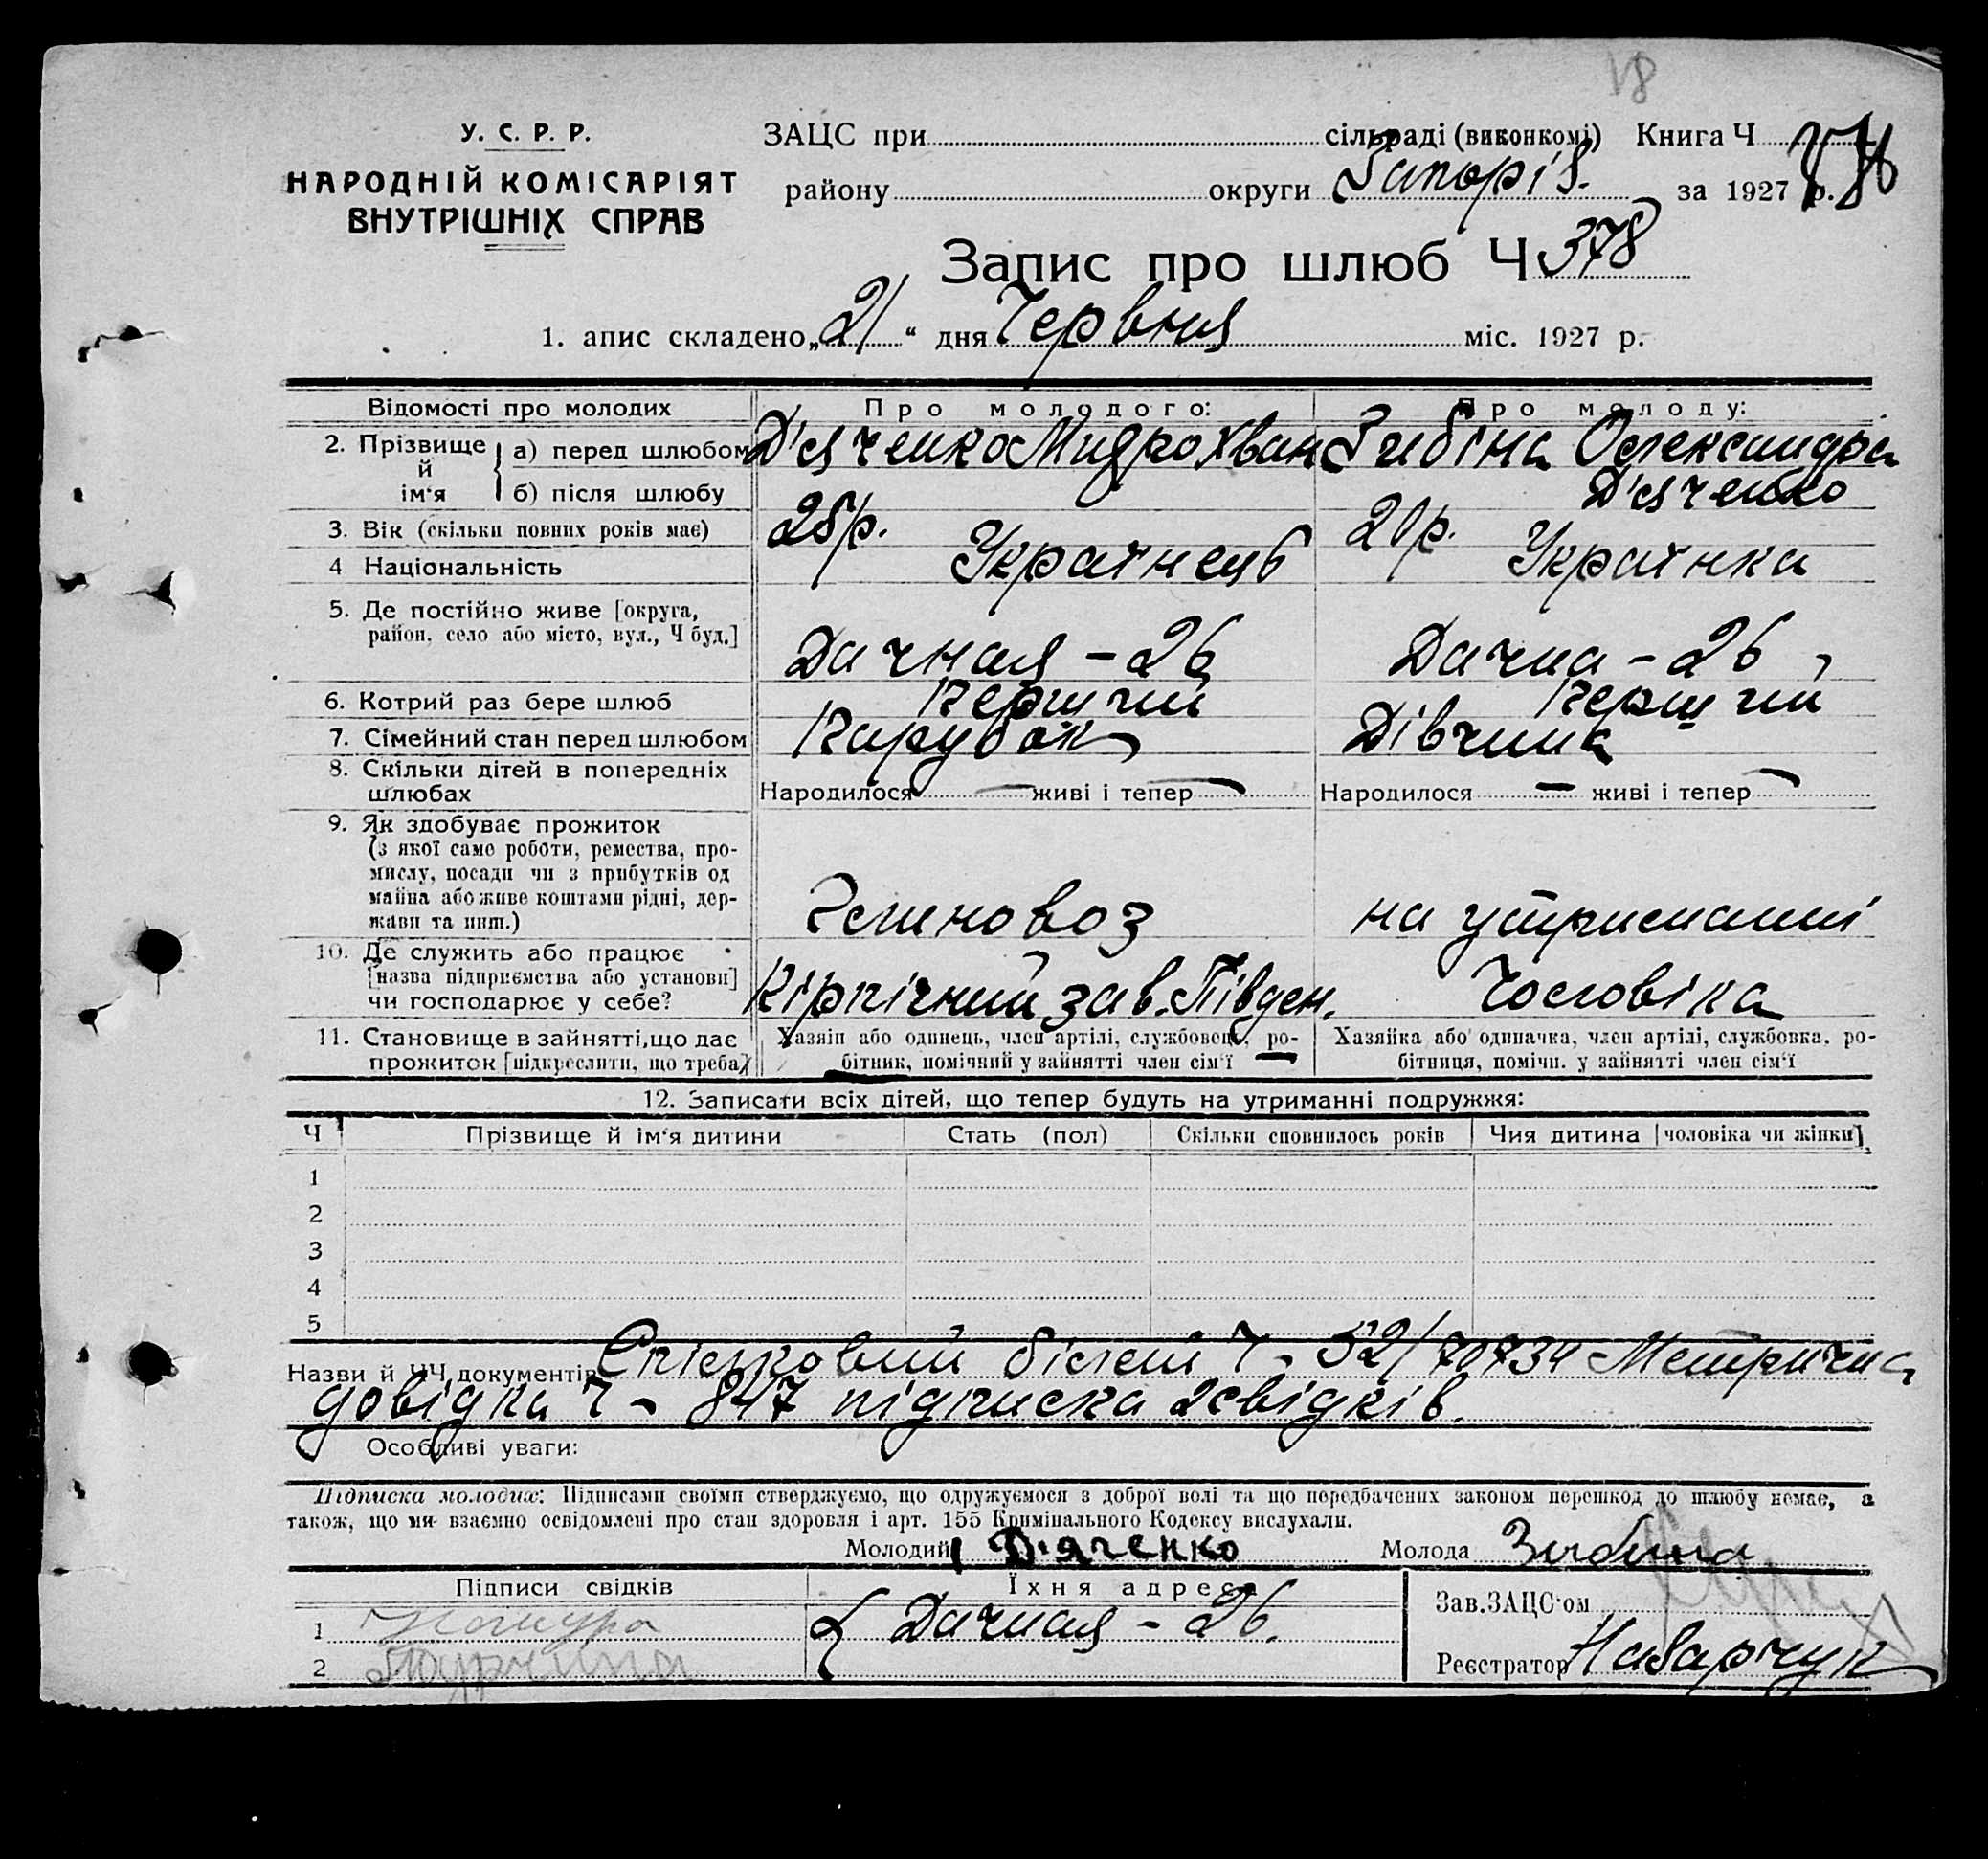 18
У. С. Р. Р.
НАРОДНІЙ КОМІСАРІЯТ
ВНУТРІШНІХ СПРАВ
ЗАЦС при сільраді (виконкомі) Книга Ч
району округи Запоріз. за 1927 р.
Запис про шлюб Ч 378
1. апис складено „21“ дня Червня міс. 1927 р.
Відомості про молодих Про молодого: Про молоду:
2. Прізвище й ім‘я а) перед шлюбом Д'яченко Митрохван Зибіна Олександра
б) після шлюбу Д'яченко
3. Вік (скільки повних років має) 25 р. 20 р.
4 Національність Українець Українка
5. Де постійно живе [округа,
район, село або місто, вул., Ч буд.] Дачная – 26 Дачна – 26
6. Котрий раз бере шлюб Перший Перший
7. Сімейний стан перед шлюбом Парубок Дівчина
8. Скільки дітей в попередніх
шлюбах Народилося — живі і тепер — Народилося — живі і тепер —
9. Як здобуває прожиток
(з якої саме роботи, ремества, про-
мислу, посади чи з прибутків од
майна або живе коштами рідні, дер-
жави та инш.) на утриманні
10. Де служить або працює
[назва підприємства або установи]
чи господарює у себе? Кірпічний зав. Півден. Чоловіка
11. Становище в зайнятті, що дає
прожиток [підкреслити, що треба]
Хазяїн або одинець, член артілі, службовець, ро-
бітник, помічний у зайнятті член сім‘ї
Хазяйка або одиначка, член артілі, службовка, ро-
бітниця, помічн. у зайнятті член сім‘ї
12. Записати всіх дітей, що тепер будуть на утриманні подружжя:
Ч Прізвище й ім‘я дитини Стать (пол) Скільки сповнилось років Чия дитина [чоловіка чи жінки]
1
2
3
4
5
Назви й ЧЧ документів Спілковий білет Ч – 52/70734 Метрична
довідка Ч – 847 підписка 2 свідків.
Особливі уваги:
Підписка молодих: Підписами своїми стверджуємо, що одружуємося з доброї волі та що передбачених законом перешкод до шлюбу немає, а
також, що ми взаємно освідомлені про стан здоровля і арт. 155 Кримінального Кодексу вислухали.
Молодий Дяченко Молода Зибина
Підписи свідків Їхня адреса Зав. ЗАЦС‘ом
1 Дачная – 26.
2 Реєстратор